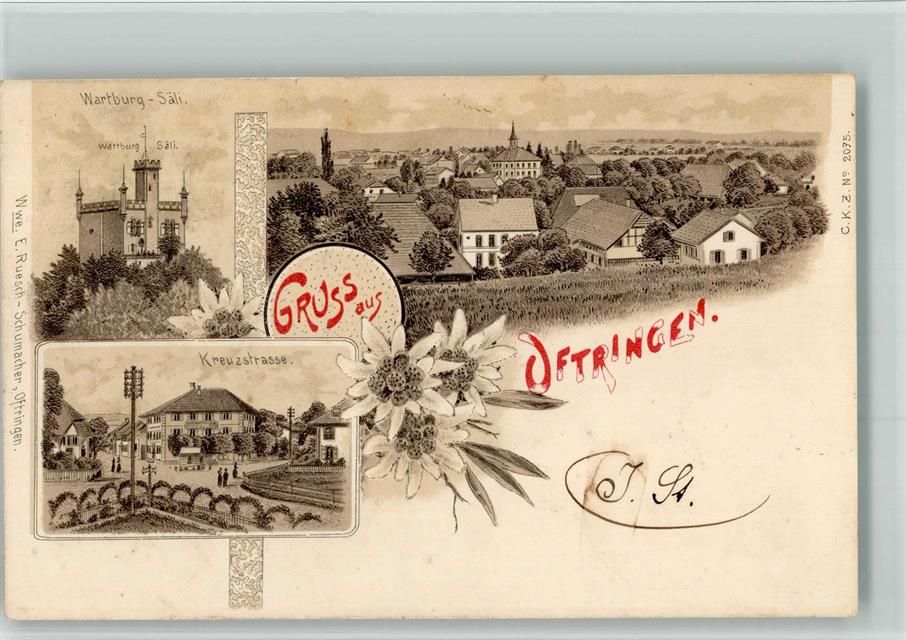 Wartburg-Säli.
Wartburg Säli.
GRUSS aus
OFTRINGEN.
Kreuzstrasse.
J. St.
Wwe. E. Ruesch-Schumacher, Oftringen.
C. K. Z. No 2075.